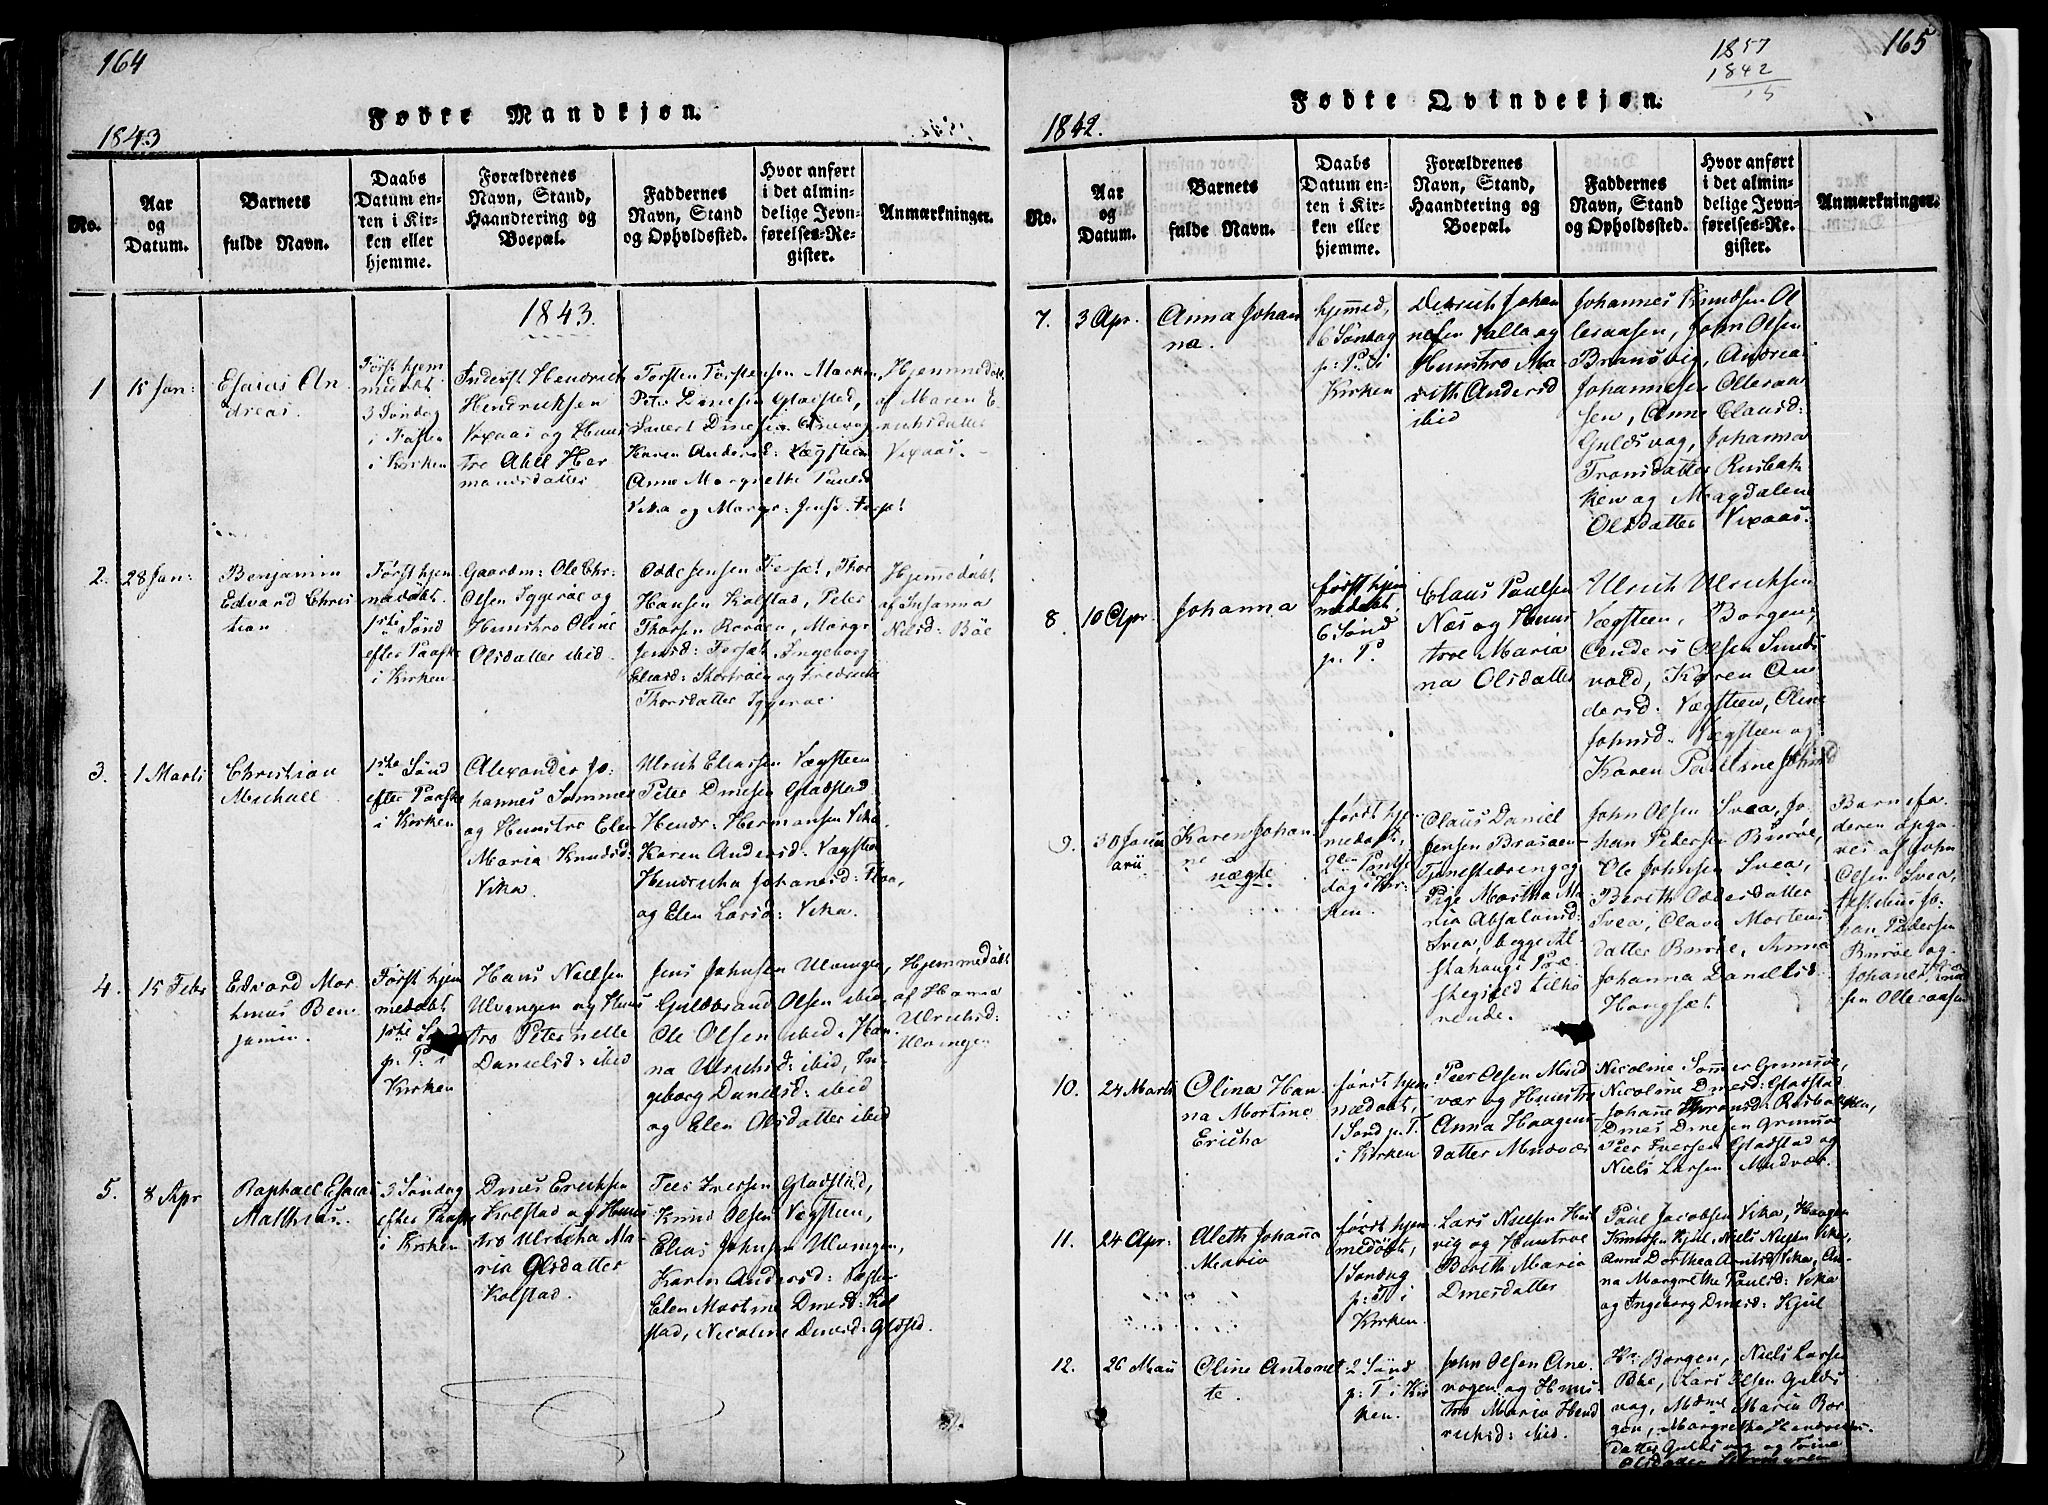 164
Fødte Mandkjøn.
1843
No.
Aar
og
Datum.
Barnets
fulde Navn.
Daabs
Datum en-
ten i Kir-
ken eller
hjemme.
Forældrenes
Navn, Stand,
Haandtering og
Boepæl.
Faddernes
Navn, Stand
og Opholdssted.
Hvor anført
i det almin-
delige Jevn-
førelses-Re-
gister.
Anmærkninger.
1843.
1
15 Jan:
Esaias An
dreas.
Først hjem
medøbt
3 Søndag
i Fasten
i Kirken
Inderst Hendrich
Hendriksen
Vixaas og Huus
tro Abel Her
mansdatter
Torsten Torstensen Marken,
Peter Dinesen Gladstad,
Karen Andersd: Vægsteen
Anne Margrethe Paulsd
Vika og Margr: Jensd. Torp!
Hjemmedøbt
af Maren E-
richsdatter
Vixaas.
2.
28 Jan:
Benjamin
Edvard Chris
tian
Først hjem
medøbt.
1ste Sønd
efter Paaske
i Kirken.
Gaardm: Ole Chr.
Olsen Iggerøe og
Huustro Oline
Olsdatter ibid.
Odde Jensen Forsæt, Thor
Hansen Kolstad, Peter
Thorsen Rørøen, Margr
Jensd: Forsæt, Ingeborg
og Fredrikke
Thorsdatter Iggerøe
Hjemmedøbt
af Susanna
Nielsd: Bøe
3.
1 Marti
Christian
Michael
1ste Sønd
efter Paaske
i Kirken
Alexander Jo-
hannes Sommer
og Huustro Elen
Maria Knudsd:
Vika.
Ulrich Eliassen Vægsteen
Peter Dinesen Gladstad
Hendr: Hermansen Vika,
Karen Andersd: Vægsten
Hendricha Johansd: Floa,
og Elen Larsd: Vika.
4.
15 Febr
Edvard Mor
tinus Ben-
jamin.
Først hjem
medøbt
1ste Sønd
p. P. i
Kirken
Hans Nielsen
Ulvengen og Huus
tro Peternelle
Danielsd: ibid
Jens Johnsen Ulvingen,
Guldbrand Olsen ibid
Ole Olsen ibid. Han-
na Ulrichsd: ibid, In-
geborg Danielsd: ibid
og Elen Olsdatter ibid
Hjemmedøbt
af Hanna
Ulrichsd:
Ulvingen
5.
8 Apr
Raphael Esaias
Mathias.
3 Søndag
efter Paaske
i Kirken
Dines Eriksen
Kolstad og Huus
tro Ulricha Ma-
ria Olsdatter
Kolstad.
Peer Iversen Gladstad,
Knud Olsen Vegsteen,
Elias Johnsen Ulvingen,
Karen Andersd: Vægsten
Elen Martine Dinesd: Kol
stad, Nicoline Dinesd: Gladstd.
165
1857
1842
15
Fødte Qvindekjøn.
1842.
No.
Aar
og
Datum.
Barnets
fulde Navn.
Daabs
Datum en-
ten i Kir-
ken eller
hjemme.
Forældrenes
Navn, Stand,
Haandtering og
Boepæl.
Faddernes
Navn, Stand
og Opholdssted.
Hvor anført
i det almin-
delige Jevn-
førelses-Re-
gister.
Anmærkninger.
7.
3 Apr.
Anna Johan
na.
hjemmed,
6 Søndag
p: P. i
Kirken
Detrich Johan
nesen Valla og
Huustro Ma-
rith Andersd
ibid
Johannes Knudsen Ol
lesaasen, John Olsen
Brandsvig, Andreas
Johannesen Olleraa
sen, Anne Clausd:
Guldsvag, Johanna
Transdatter Rusbak-
ken og Magdalene
Olsdatter Vixaas.
8.
10 Apr.
Johanna
først hjem
medøbt,
6 Sønd
p. P.
Claus Paulsen
Næs og Huus
troe Maria
na Olsdatter
Ulrich Ulriksen
Vægsteen, Borgen,
Anders Olsen Sund
vold, Karen An
dersd. Vægsteen, Oline
Johnsd. Vægsteen og
Karen
9.
30 Janu
arii
Karen Johan
ne
uægte
først hje-
medøbt,
2den Paaske
dag i Kir-
ken.
Claus Daniel
Jensen Brasøen
Tjenestedreng og
Pige Martha Ma
ria Absalonsd:
Svea, begge Al-
stahaugs Præ
stegield tilhø
rende.
John Olsen Svea, Jo-
han Petersen Burøe,
Ole Johnsen Svea,
Berith Oddesdatter
Svea, Olava Mortens
datter Burøe, Anna
Johanna Danielsd.
Haugsæt.
Barnefa
deren opga-
ves af John
Olsen Svea,
Johan Pedersen
Burøe og
Johanes Knud
sen Olleraasen
10.
24 Marti
Olina Han-
na Mortine
Ericha
først hjem
medøbt,
1 Sønd p. T.
i Kirken
Peer Olsen Mud
vær og Huustro
Anna Haagens
datter Mudvær
Nicoline Sommer Grimsøe,
Nicoline Dinesd: Gladstad
Johanne Transd: Rusbakken,
Dines Dinesen Grimsøe
Peer Iversen Gladstad og
Niels Larsen Mudvær.
11.
24 Apr:
Aleth Johanna
Maria
først hjem
medøbt,
1 Søndag
p: T. i
Kirken.
Lars Nielsen Hul
vig og Huustroe
Berith Maria
Dinesdatter
Paul Jacobsen Vika, Haagen
Knudsen Kjul, Niels Nielsen Vika,
Anne Dorthea Arntsd Vika, An-
na Margrethe Paulsd: Vika
og Ingeborg Dinesd: Kjul
12.
26 Maii
Oline Antonet
te.
2 Sønd
p: T. i Kir
ken.
John Olsen Ane
vogen og Huus
tro Maria Hend
richsd: ibid.
Hr: Borgen, Niels Larsen
Bøe, Lars Olsen Gulds
vog, Mdme Maria Bor-
gen, Margretha Hendriks-
datter Guldsvog og Trine